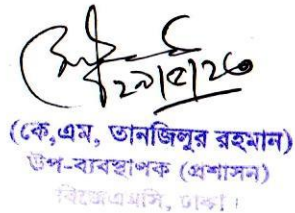 ২৯/৫/২৩
(কে,এম, তানজিলুর রহমান)
উপ-ব্যবস্থাপক (প্রশাসন)
বিজেএমসি, ঢাকা।